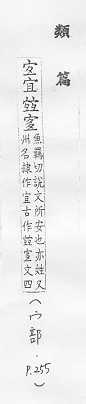 類篇
宐宜
魚羈切說文所安也亦姓又
州名隸作宜古作文四
(宀部．P.255)